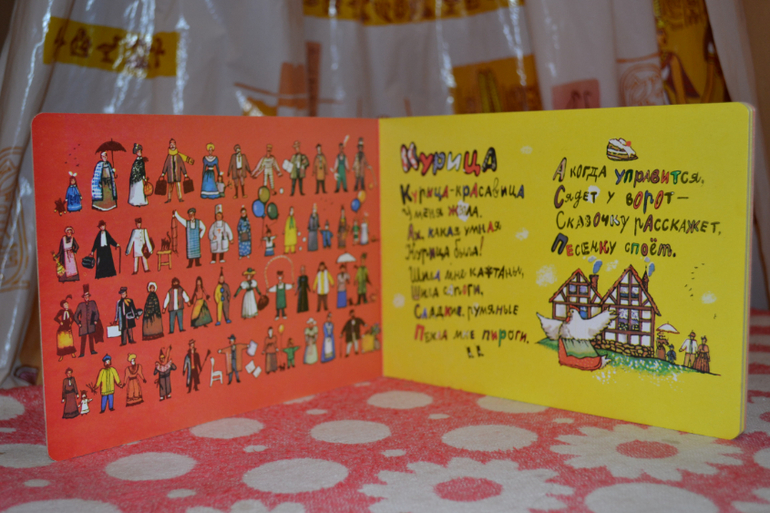 Курица
Курица-красавица
У меня жила.
Ах, какая умная
Курица была!
Шила мне кафтаны,
Шила сапоги,
Сладкие, румяные
Пекла мне пироги.
А когда управится,
Сядет у ворот—
Сказочку расскажет,
Песенку споёт.